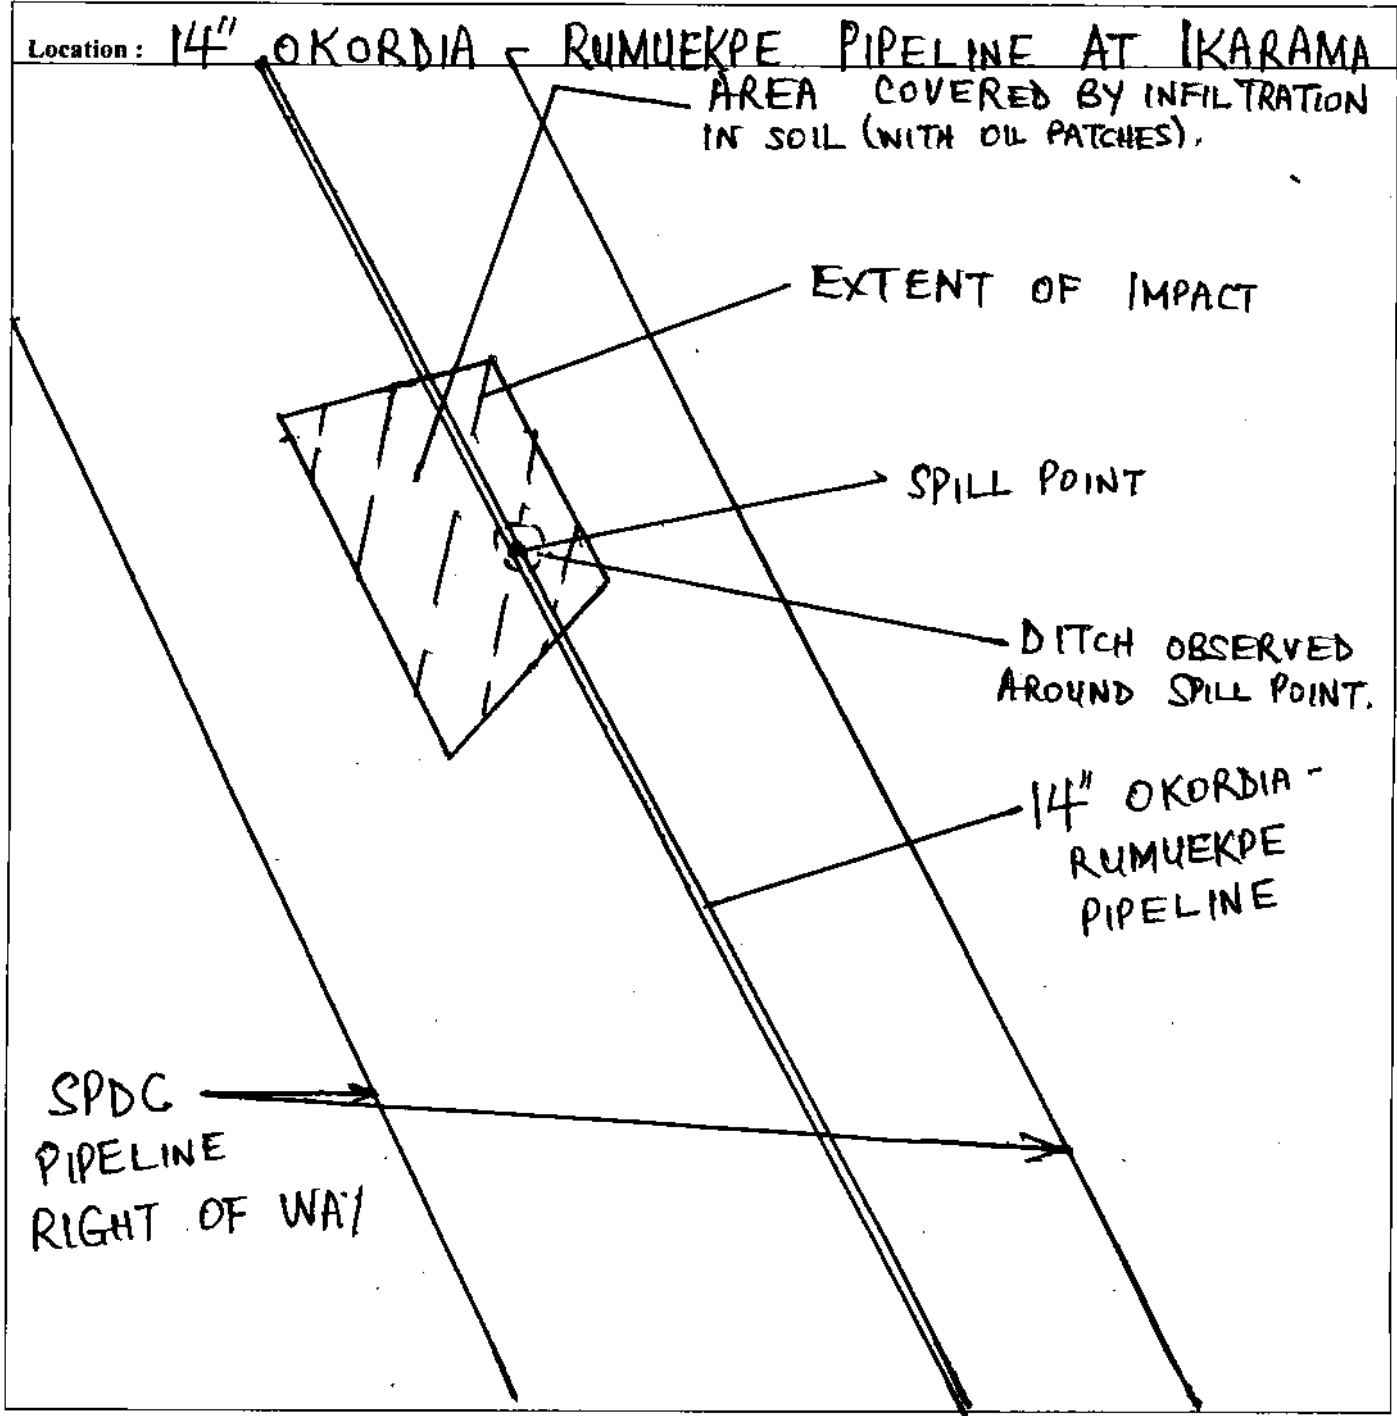 Location : 14" OKORDIA - RUMUEKPE PIPELINE AT IKARAMA
AREA COVERED BY INFILTRATION
IN SOIL (WITH OIL PATCHES).
EXTENT OF IMPACT
SPILL POINT
DITCH OBSERVED
AROUND SPILL POINT.
14" OKORDIA -
RUMUEKPE
PIPELINE
SPDC
PIPELINE
RIGHT OF WAY